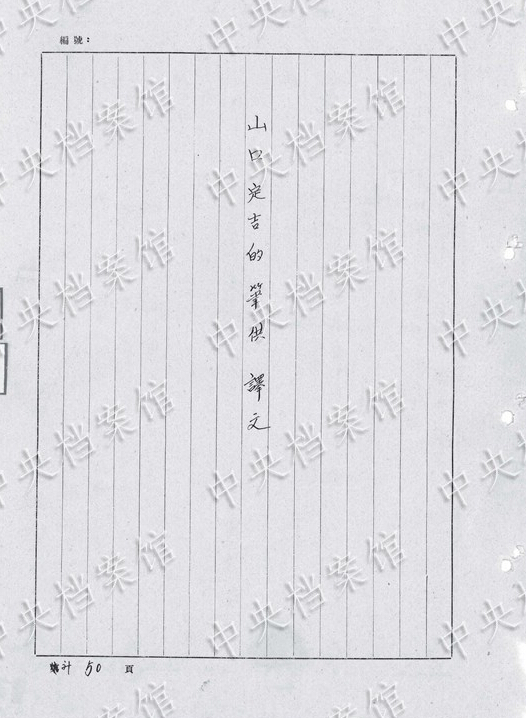 編號：
山口定吉的筆供 譯文
计 50 頁
中央档案馆